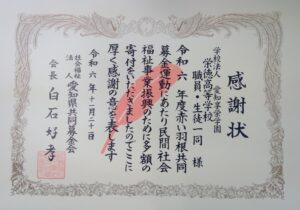 感謝状
学校法人 愛知享栄学園
栄徳高等学校
職員・生徒一同 様
令和六年度赤い羽根共同
募金運動にあたり民間社会
福祉事業振興のために多額の
寄付をいただきましたのでここに
厚く感謝の意を表します
令和六年十一月二十日
社会福祉法人 愛知県共同募金会
会長 白石好孝